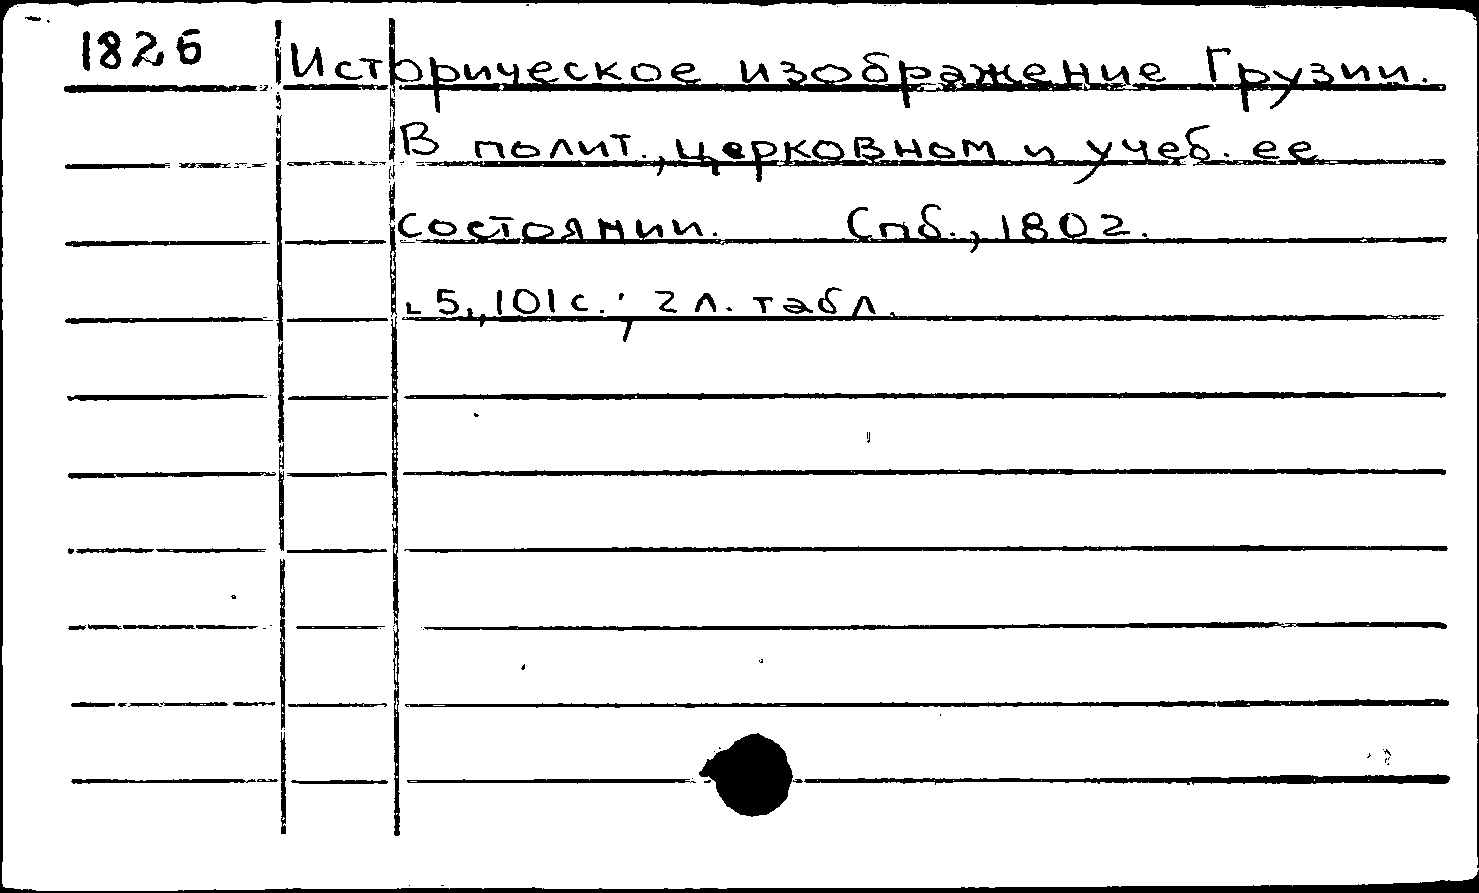 1826
Историческое изображение Грузии.
В полит., церковном и учеб. ее
состоянии. Спб., 1802.
[5], 101 с.; 2 л. табл.